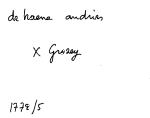 de haene andries
X Grosey
1778/5